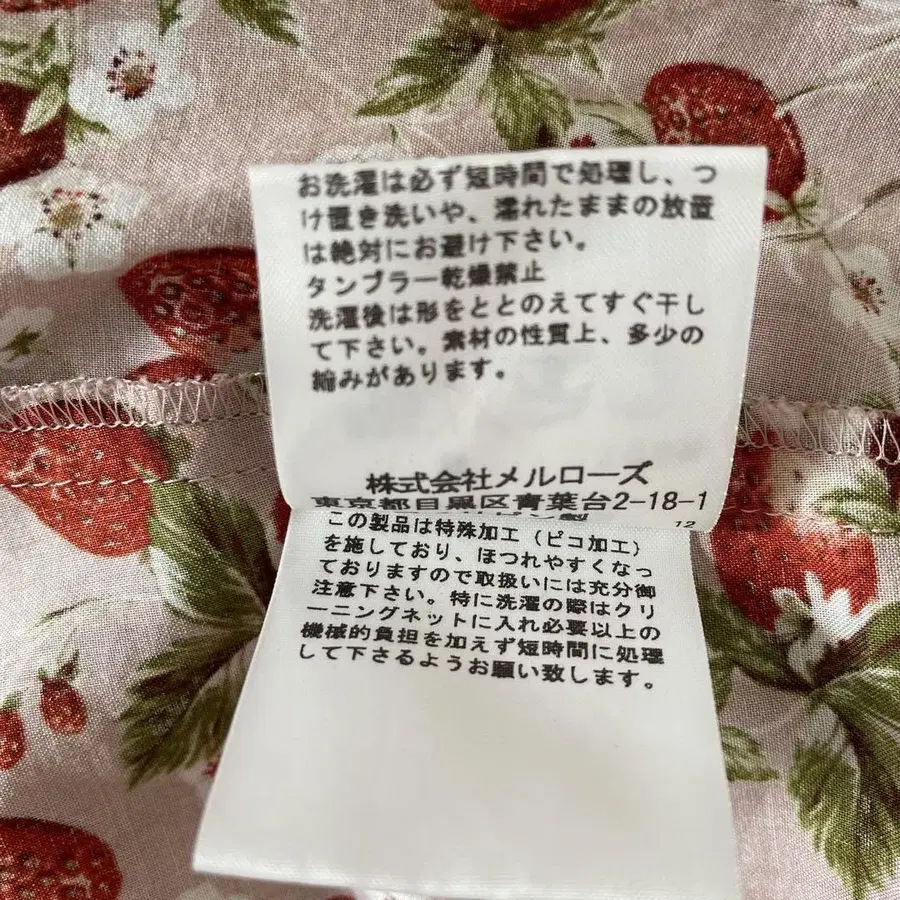 お洗濯は必ず短時間で処理し、つ
け置き洗いや、濡れたままの放置
は絶対にお避け下さい。
タンブラー乾燥禁止
洗濯後は形をととのえてすぐ干し
て下さい。素材の性質上、多少の
縮みがあります。
株式会社メルローズ
東京都目黒区青葉台2-18-1
製
12
この製品は特殊加工(ピコ加工)
を施しており、ほつれやすくなっ
ておりますので取扱いには充分御
注意下さい。特に洗濯の際はクリ
ーニングネットに入れ必要以上の
機械的負担を加えず短時間に処理
して下さるようお願い致します。